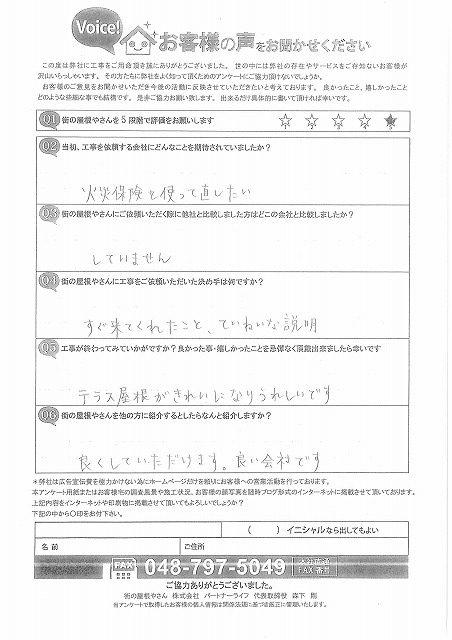 Voice!
お客様の声をお聞かせください
この度は弊社に工事をご用命頂き誠にありがとうございました。世の中には弊社の存在やサービスをご存知ないお客様が
沢山いらっしゃいます。その方たちに弊社をよく知って頂くためのアンケートにご協力頂けないでしょうか。
お客様のご意見をお聞かせいただき今後の活動に反映させていただきたいと考えております。良かったこと、嬉しかったこと
どのような些細な事でも結構です。是非ご協力お願い致します。出来るだけ具体的に書いて頂ければ幸いです。
Q1 街の屋根やさんを5段階で評価をお願いします
☆ ☆ ☆ ☆ ★
Q2 当初、工事を依頼する会社にどんなことを期待されていましたか?
火災保険を使って直したい
Q3 街の屋根やさんにご依頼いただく際に他社と比較しました方はどこの会社と比較しましたか?
していません
Q4 街の屋根やさんに工事をご依頼いただいた決め手は何ですか?
すぐ来てくれたこと、ていねいな説明
Q5 工事が終わってみていかがですか?良かった事・嬉しかったことを忌憚なく頂戴出来ましたら幸いです
テラス屋根がきれいになりうれしいです
Q6 街の屋根やさんを他の方に紹介するとしたらなんと紹介しますか?
良くしていただけます。良い会社です
*弊社は広告宣伝費を極力かけない為にホームページだけを頼りにお客様への営業活動を行っております。
本アンケート用紙またはお客様宅の調査風景や施工状況、お客様の顔写真を随時ブログ形式のインターネットに掲載させて頂いております。
上記内容をインターネットや印刷物に掲載させて頂いてもよろしいでしょうか?
下記の中から○印をお付下さい。
( )イニシャルなら出してもよい
名前
ご住所
FAX 048-797-5049
FAX番号
ご協力ありがとうございました。
街の屋根やさん 株式会社 パートナーライフ 代表取締役 森下 剛
当アンケートで取得したお客様の個人情報は関係法規に基づき厳正に管理いたします。